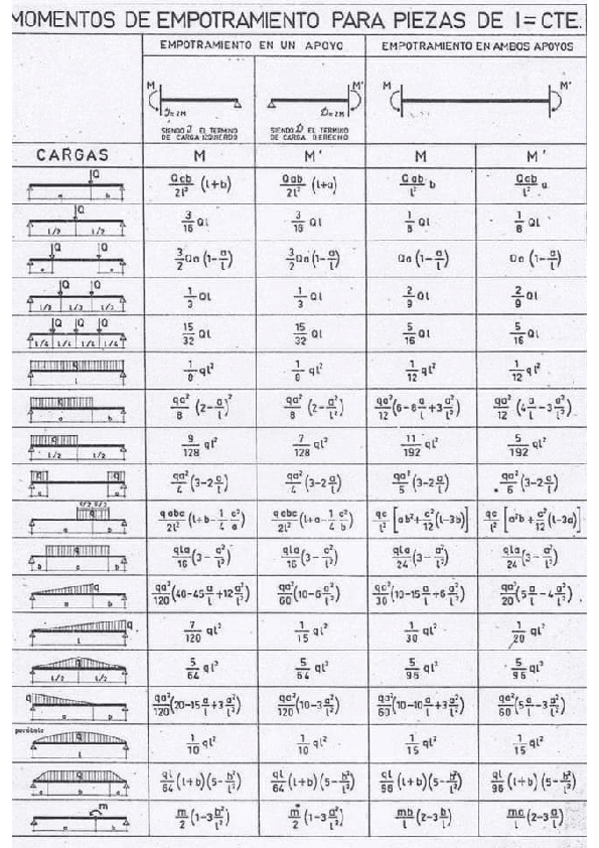 MOMENTOS DE EMPOTRAMIENTO PARA PIEZAS DE I = CTE.
EMPOTRAMIENTO EN UN APOYO EMPOTRAMIENTO EN AMBOS APOYOS
M M' M M'
=2M =2M
SIENDO EL TERMINO DE CARGA IZQUIERDO
SIENDO EL TERMINO DE CARGA DERECHO
CARGAS M M' M M'
Q a b Qab/2l² (l+b) Qab/2l² (l+a) Qab/l² b Qab/l² a
Q l/2 l/2 3/16 Ql 3/16 Ql 1/8 Ql 1/8 Ql
Q Q a a 3/2 Qa (1-a/l) 3/2 Qa (1-a/l) Qa (1-a/l) Qa (1-a/l)
Q Q l/3 l/3 l/3 1/3 Ql 1/3 Ql 2/9 Ql 2/9 Ql
Q Q Q l/4 l/4 l/4 l/4 15/32 Ql 15/32 Ql 5/16 Ql 5/16 Ql
l 1/8 ql² 1/8 ql² 1/12 ql² 1/12 ql²
a b qa²/8 (2-a/l)² qa²/8 (2-a²/l²) qa²/12 (6-8a/l+3a²/l²) qa²/12 (4a/l-3a²/l²)
l/2 l/2 9/128 ql² 7/128 ql² 11/192 ql² 5/192 ql²
q q a a qa²/4 (3-2a/l) qa²/4 (3-2a/l) qa²/6 (3-2a/l)
c/2 c/2 q a b qabc/2l² (l+b-1/4 c²/a) qabc/2l² (l+a-1/4 c²/b) qc/l² [ab²+c²/12 (l-3b)] qc/l² [a²b+c²/12 (l-3a)]
q b a b
q a b qa²/120 (40-45a/l+12a²/l²) qa²/30 (10-15a/l+6a²/l²) qa²/20 (5a/l-4a²/l²)
q l 7/120 ql² 1/15 ql² 1/30 ql² 1/20 ql²
q l/2 l/2 5/64 ql² 5/64 ql² 5/96 ql² 5/96 ql²
q a b qa²/120 (20-15a/l+3a²/l²) qa²/120 (10-3a²/l²) qa²/60 (10-10a/l+3a²/l²) qa²/60 (5a/l-3a²/l²)
parábola q l 1/10 ql² 1/10 ql² 1/15 ql² 1/15 ql²
q a b a ql/64 (l+b)(5-b²/l²) ql/64 (l+b)(5-b²/l²) ql/96 (l+b)(5-b²/l²) ql/96 (l+b)(5-b²/l²)
m a b m/2 (1-3b²/l²) m/2 (1-3a²/l²) mb/l (2-3b/l) ma/l (2-3a/l)